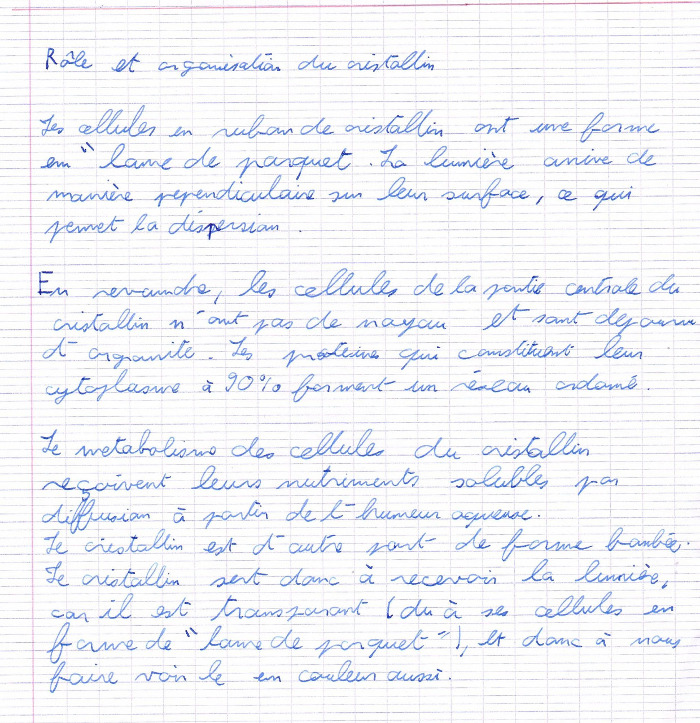 Rôle et organisation du cristallin
Les cellules en ruban de cristallin ont une forme
em " lame de parquet. La lumière arrive de
manière pependiculaire sur leur surface, ce qui
permet la dispersion.
En revanche, les cellules de la partie centrale du
cristallin n'ont pas de noyau et sont dépourvu
d'organite. Les proteines qui constituent leur
cytoplasme à 90% forment un réseau ordonné.
Le metabolisme des cellules du cristallin
reçoivent leurs nutriments solubles par
diffusion à partir de l'humeur aqueuse.
Le cristallin est d'autre part de forme bombée.
Le cristallin sert donc à recevoir la lumière,
car il est transparant (du à ses cellules en
forme de "lame de parquet"), et donc à nous
faire voir le en couleur aussi.